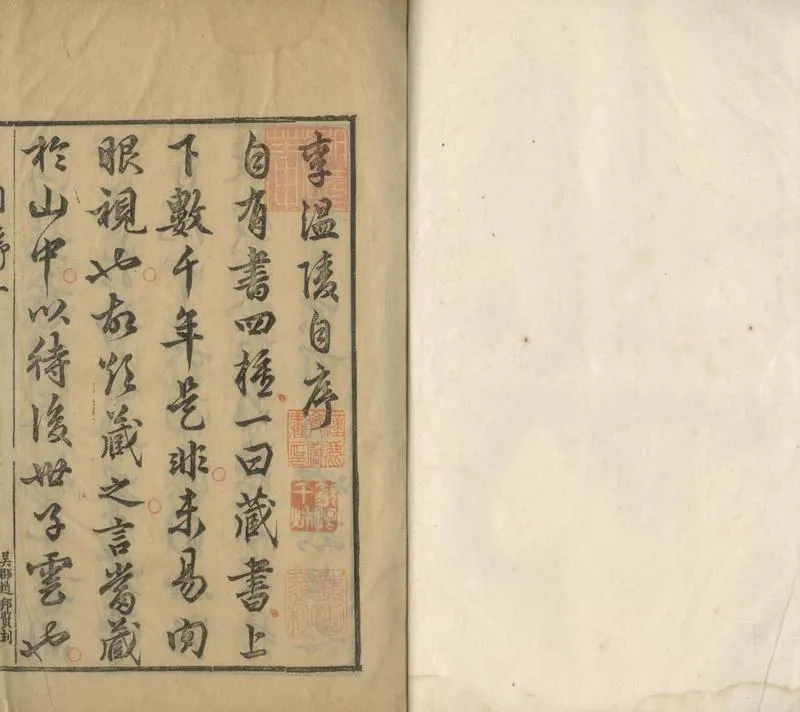 李温陵自序
自有書四種一曰藏書上
下數千年是非未易肉
眼視也故欲藏之言當藏
於山中以待後世子雲也
自序一
吳郡趙邦賢刻